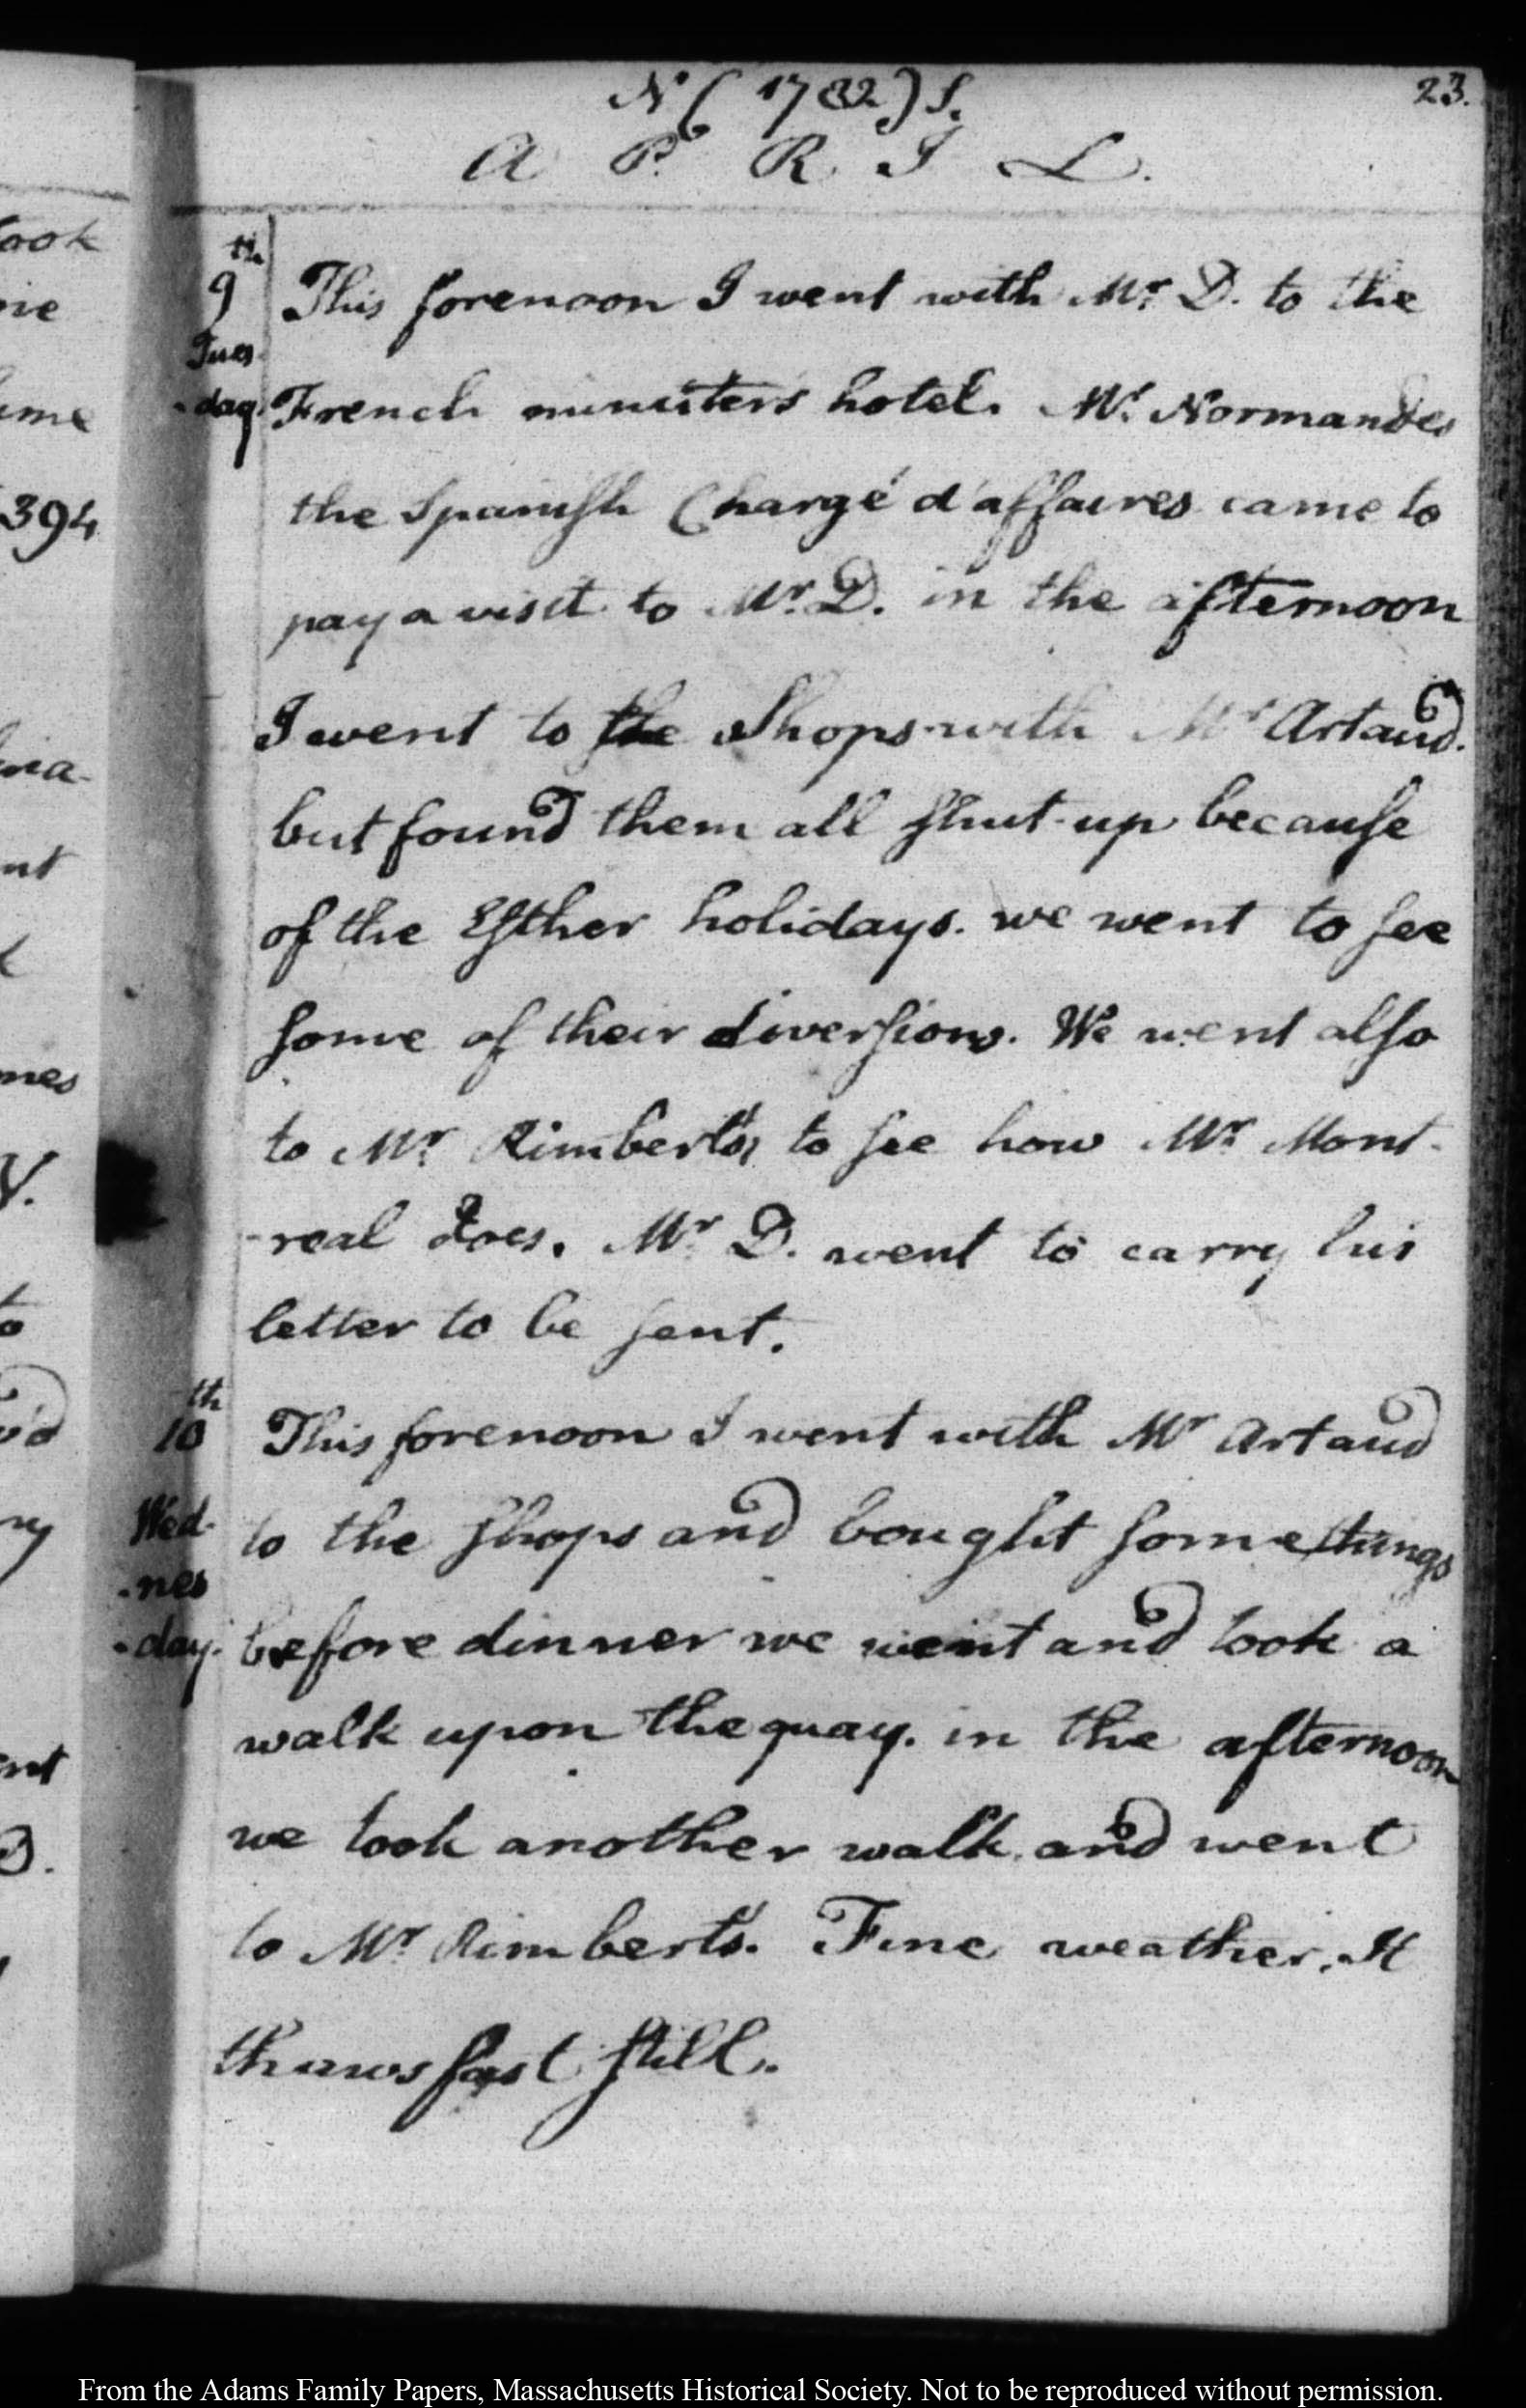 ook
me
394
nt
mes
V.
to
nt
D.
N (1782) S.
23.
A P R I L.
9th
Tues-
-day.
This forenoon I went with Mr. D. to the
French minister's hotel. Mr. Normandes
the Spanish Chargé d'affaires came to
pay a visit to Mr. D. in the afternoon
I went to the Shops with Mr Artaud.
but found them all shut up because
of the Esther holidays. we went to see
some of their diversions. We went also
to Mr. Rimbert's, to see how Mr. Mont-
-real does. Mr. D. went to carry his
letter to be sent.
10th
Wed-
-nes
-day.
This forenoon I went with Mr Artaud
to the shops and bought some things
before dinner we went and took a
walk upon the quay. in the afternoon
we took another walk, and went
to Mr. Rimbert's. Fine weather. It
thaws fast still.
From the Adams Family Papers, Massachusetts Historical Society. Not to be reproduced without permission.